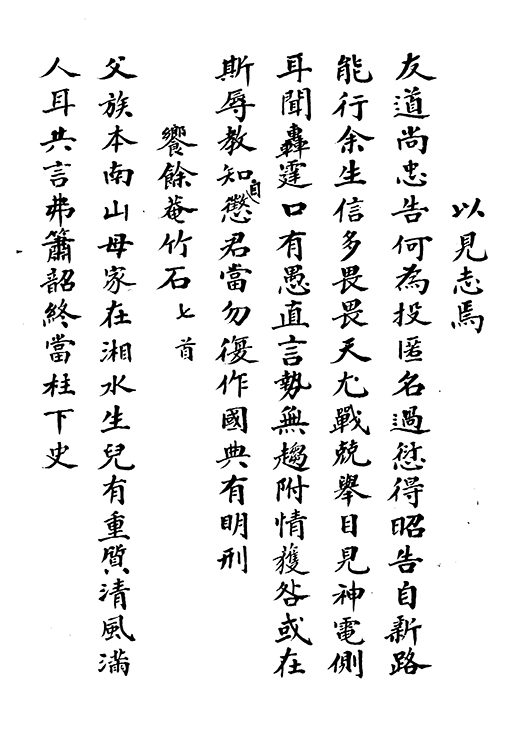 以見志焉
友道尚忠告何為投匿名過愆得昭告自新路
能行余生信多畏畏天尤戰兢舉目見神電側
耳聞轟霆口有愚直言勢無趨附情獲咎或在
斯辱教知自懲君當勿復作國典有明刑
饗餘菴竹石七首
父族本南山母家在湘水生兒有重質清風滿
人耳共言弗簫韶終當柱下史